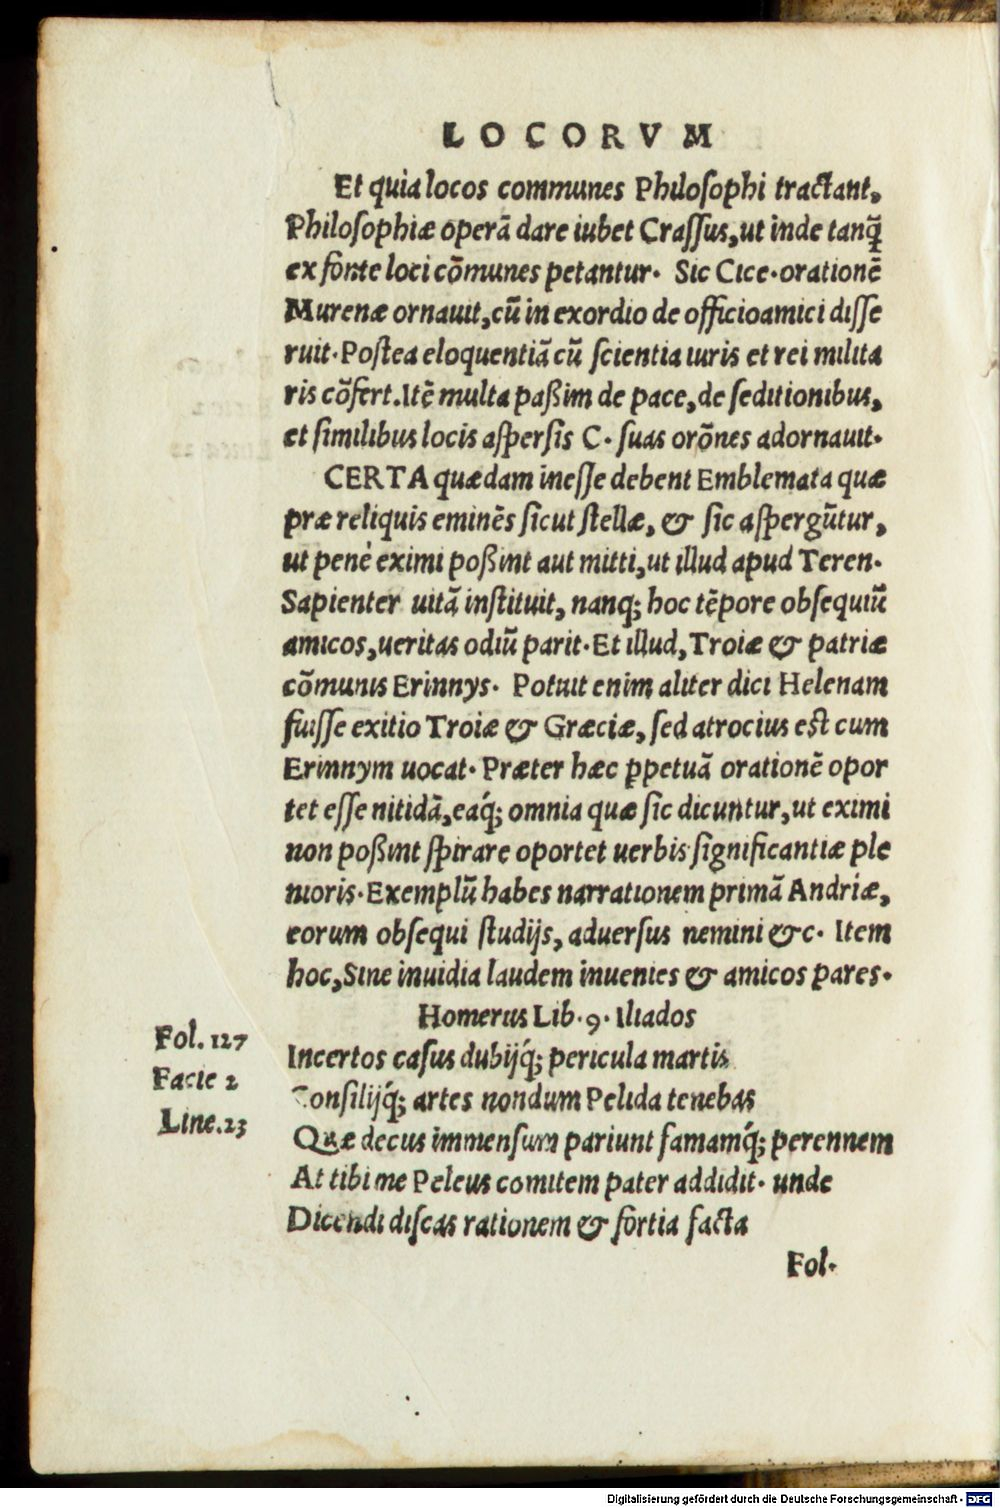 LOCORVM
Et quia locos communes Philosophi tractant,
Philosophiæ operā dare iubet Crassus, ut inde tanq̄
ex fonte loci cōmunes petantur. Sic Cice. orationē
Murenæ ornauit, cū in exordio de officio amici disse
ruit. Postea eloquentiā cū scientia iuris et rei milita
ris cōfert. Itē multa paßim de pace, de seditionibus,
et similibus locis aspersis C. suas orōnes adornauit.
CERTA quædam inesse debent Emblemata quæ
præ reliquis eminēs sicut stellæ, & sic aspergūtur,
ut penè eximi poßint aut mitti, ut illud apud Teren.
Sapienter uitā instituit, nanq; hoc tēpore obsequiū
amicos, ueritas odiū parit. Et illud, Troiæ & patriæ
cōmunis Erinnys. Potuit enim aliter dici Helenam
fuisse exitio Troiæ & Græciæ, sed atrocius est cum
Erinnym uocat. Præter hæc ꝑpetuā orationē opor
tet esse nitidā, eaq́; omnia quæ sic dicuntur, ut eximi
non poßint spirare oportet uerbis significantiæ ple
nioris. Exemplū habes narrationem primā Andriæ,
eorum obsequi studijs, aduersus nemini &c. Item
hoc, Sine inuidia laudem inuenies & amicos pares.
Homerus Lib. 9. Iliados
Fol. 127
Facie 2
Line. 23
Incertos casus dubijq́; pericula martis
Consilijq́; artes nondum Pelida tenebas
Quæ decus immensum pariunt famamq́; perennem
At tibi me Peleus comitem pater addidit. unde
Dicendi discas rationem & fortia facta
Fol.
Digitalisierung gefördert durch die Deutsche Forschungsgemeinschaft - DFG